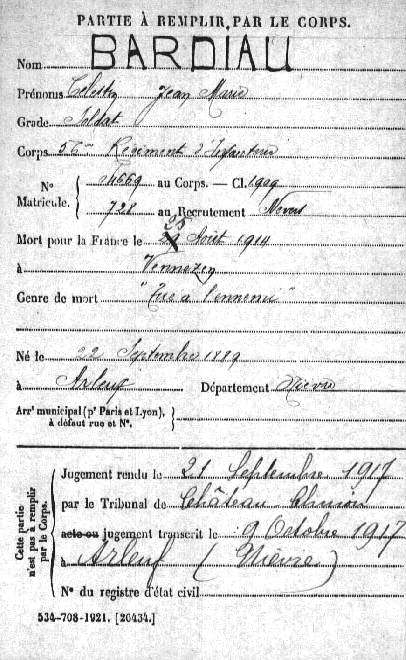 PARTIE À REMPLIR PAR LE CORPS.
Nom BARDIAU
Prénoms Célestin Jean Marie
Grade Soldat
Corps 56me Régiment d'Infanterie
N° Matricule. { 04669 au Corps. — Cl. 1909
728 au Recrutement Nevers
Mort pour la France le 25 Août 1914
à Vennezey
Genre de mort "Tué à l'ennemi"
Né le 22 Septembre 1889
à Arleuf Département Nièvre
Arrt municipal (pr Paris et Lyon), à défaut rue et N°. }
Cette partie n'est pas à remplir par le Corps.
Jugement rendu le 21 Septembre 1917
par le Tribunal de Château Chinon
acte ou jugement transcrit le 9 Octobre 1917
à Arleuf (Nièvre)
N° du registre d'état civil
534-708-1921. [26434.]